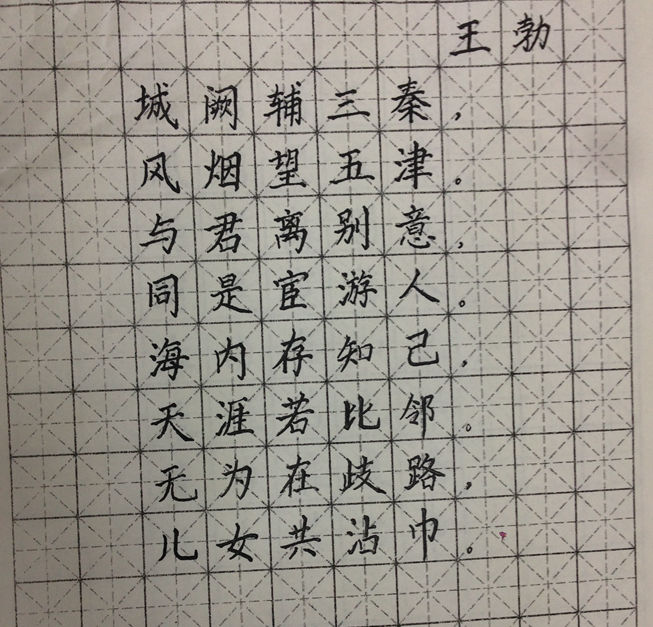 王勃
城阙辅三秦，
风烟望五津。
与君离别意，
同是宦游人。
海内存知己，
天涯若比邻。
无为在歧路，
儿女共沾巾。